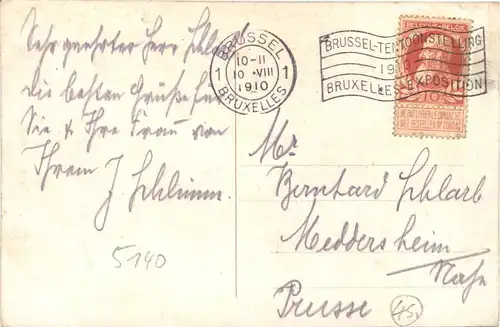 Sehr geehrter Herr Schlarb
Die besten Grüße für
Sie & Ihre Frau von
Ihrem J Schlimm.
5140
BRUSSEL
1 10-11 1
10 -VIII
1910
BRUXELLES
BRUSSEL-TENTOONSTELLING
1910
BRUXELLES EXPOSITION
BELGIQUE-BELGIË
10
NE PAS LIVRER LE DIMANCHE
NIET BESTELLEN OP ZONDAG
Mr
Bernhard Schlarb
Meddersheim
Nahe
Prusse
45.